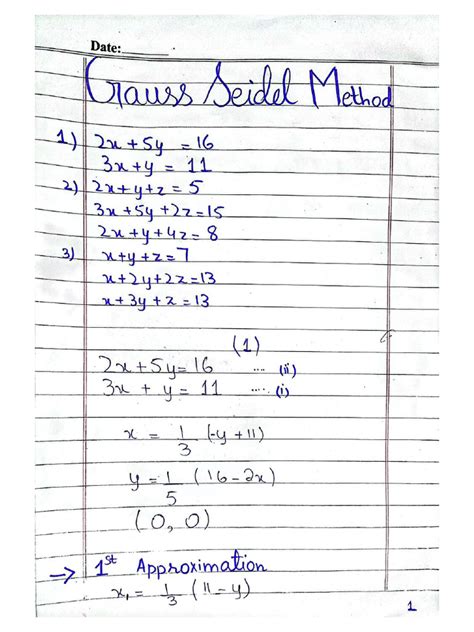 Date:
Gauss Seidel Method
1) 2x + 5y = 16
3x + y = 11
2) 2x + y + z = 5
3x + 5y + 2z = 15
2x + y + 4z = 8
3) x + y + z = 7
x + 2y + 2z = 13
x + 3y + z = 13
(1)
2x + 5y = 16 .... (ii)
3x + y = 11 .... (i)
x = 1/3 (-y + 11)
y = 1/5 (16 - 2x)
(0, 0)
→ 1st Approximation
x₁ = 1/3 (11 - y)
1